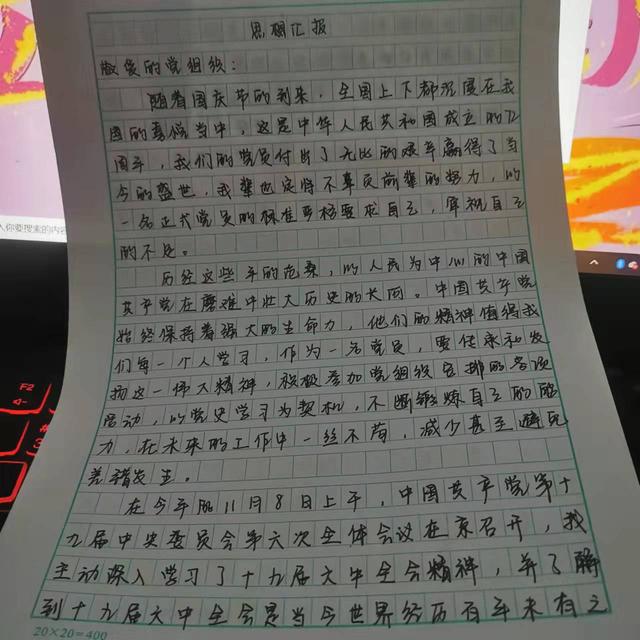 思想汇报
敬爱的党组织：
随着国庆节的到来，全国上下都沉浸在我
国的喜悦当中，这是中华人民共和国成立的72
周年，我们的党员付出了无比的艰辛赢得了当
今的盛世，我辈也定将不辜负前辈的努力，以
一名正式党员的标准严格要求自己，审视自己
的不足。
历经这些年的沧桑，以人民为中心的中国
共产党在磨难中壮大历史的长河。中国共产党
始终保持着强大的生命力，他们的精神值得我
们每一个人学习，作为一名党员，要传承和发
扬这一伟大精神，积极参加党组织安排的各项
活动，以党史学习为契机，不断锻炼自己的能
力，在未来的工作中一丝不苟，减少甚至避免
差错发生。
在今年的11月8日上午，中国共产党第十
九届中央委员会第六次全体会议在京召开，我
主动深入学习了十九届六中全会精神，并了解
到十九届六中全会是当今世界经历百年未有之
20×20=400
入你要搜索的内容
F2